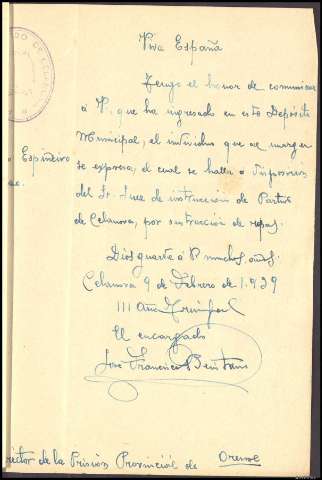 Viva España
Tengo el honor de comunicar
á V. que ha ingresado en este Depósito
Municipal, el individuo que al margen
o Espiñeiro
se expresa, el cual se halla a disposición
del Sr. Juez de instrucción de Partido
de Celanova, por sustracción de ropas.
Dios guarde á V muchos años.
Celanova 9 de Febrero de 1.939
III Año Triunfal
El encargado
José Francisco
Director de la Prisión Provincial de Orense